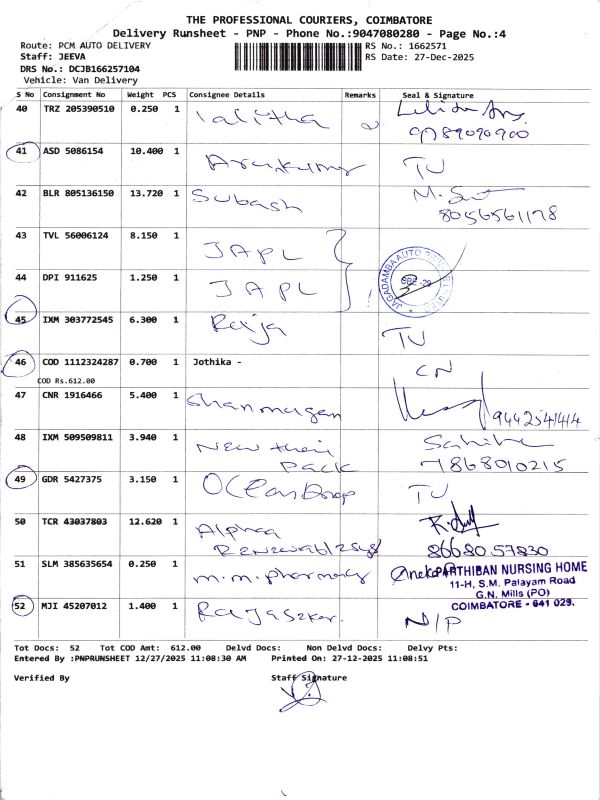 THE PROFESSIONAL COURIERS, COIMBATORE
Delivery Runsheet - PNP - Phone No.:9047080280 - Page No.:4
Route: PCM AUTO DELIVERY
RS No.: 1662571
Staff: JEEVA
RS Date: 27-Dec-2025
DRS No.: DCJB166257104
Vehicle: Van Delivery
S No Consignment No Weight PCS Consignee Details Remarks Seal & Signature
40 TRZ 205390510 0.250 1 Lalitha
9789090900
41 ASD 5086154 10.400 1 Arunkumar TU
42 BLR 805136150 13.720 1 Subash
8056561178
43 TVL 56006124 8.150 1 JAPL
44 DPI 911625 1.250 1 JAPL
JAGADAMBA AUTO
45 IXM 303772545 6.300 1 Raja TU
46 COD 1112324287 0.700 1 Jothika - CN
COD Rs.612.00
47 CNR 1916466 5.400 1 Shanmugam
9442541414
48 IXM 509509811 3.940 1 New
Pack 7868010215
49 GDR 5427375 3.150 1 Ocean Drop TU
50 TCR 43037803 12.620 1 Alphaa
8668057830
51 SLM 385635654 0.250 1 m.m.pharmacy
PARTHIBAN NURSING HOME
11-H, S.M. Palayam Road
G.N. Mills (PO)
COIMBATORE - 641 029.
52 MJI 45207012 1.400 1 Rajasekar. N/P
Tot Docs: 52 Tot COD Amt: 612.00 Delvd Docs: Non Delvd Docs: Delvy Pts:
Entered By :PNPRUNSHEET 12/27/2025 11:08:30 AM Printed On: 27-12-2025 11:08:51
Verified By Staff Signature